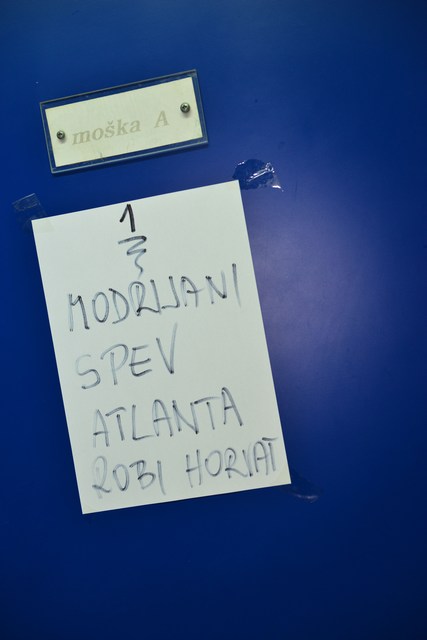 moška A
1
MODRIJANI
SPEV
ATLANTA
ROBI HORVAT